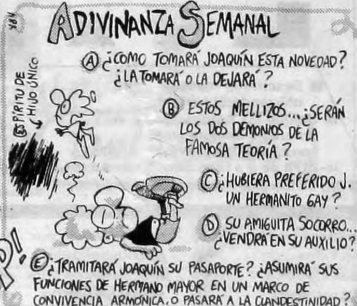 ADIVINANZA SEMANAL
A ¿COMO TOMARÁ JOAQUÍN ESTA NOVEDAD?
¿LA TOMARÁ O LA DEJARÁ?
ESPÍRITU DE
HIJO ÚNICO
B ESTOS MELLIZOS... ¿SERÁN
LOS DOS DEMONIOS DE LA
FAMOSA TEORÍA?
C ¿HUBIERA PREFERIDO J.
UN HERMANITO GAY?
D SU AMIGUITA SOCORRO...
¿VENDRÁ EN SU AUXILIO?
P!
E ¿TRAMITARÁ JOAQUÍN SU PASAPORTE? ¿ASUMIRÁ SUS
FUNCIONES DE HERMANO MAYOR EN UN MARCO DE
CONVIVENCIA ARMÓNICA, O PASARÁ A LA CLANDESTINIDAD?